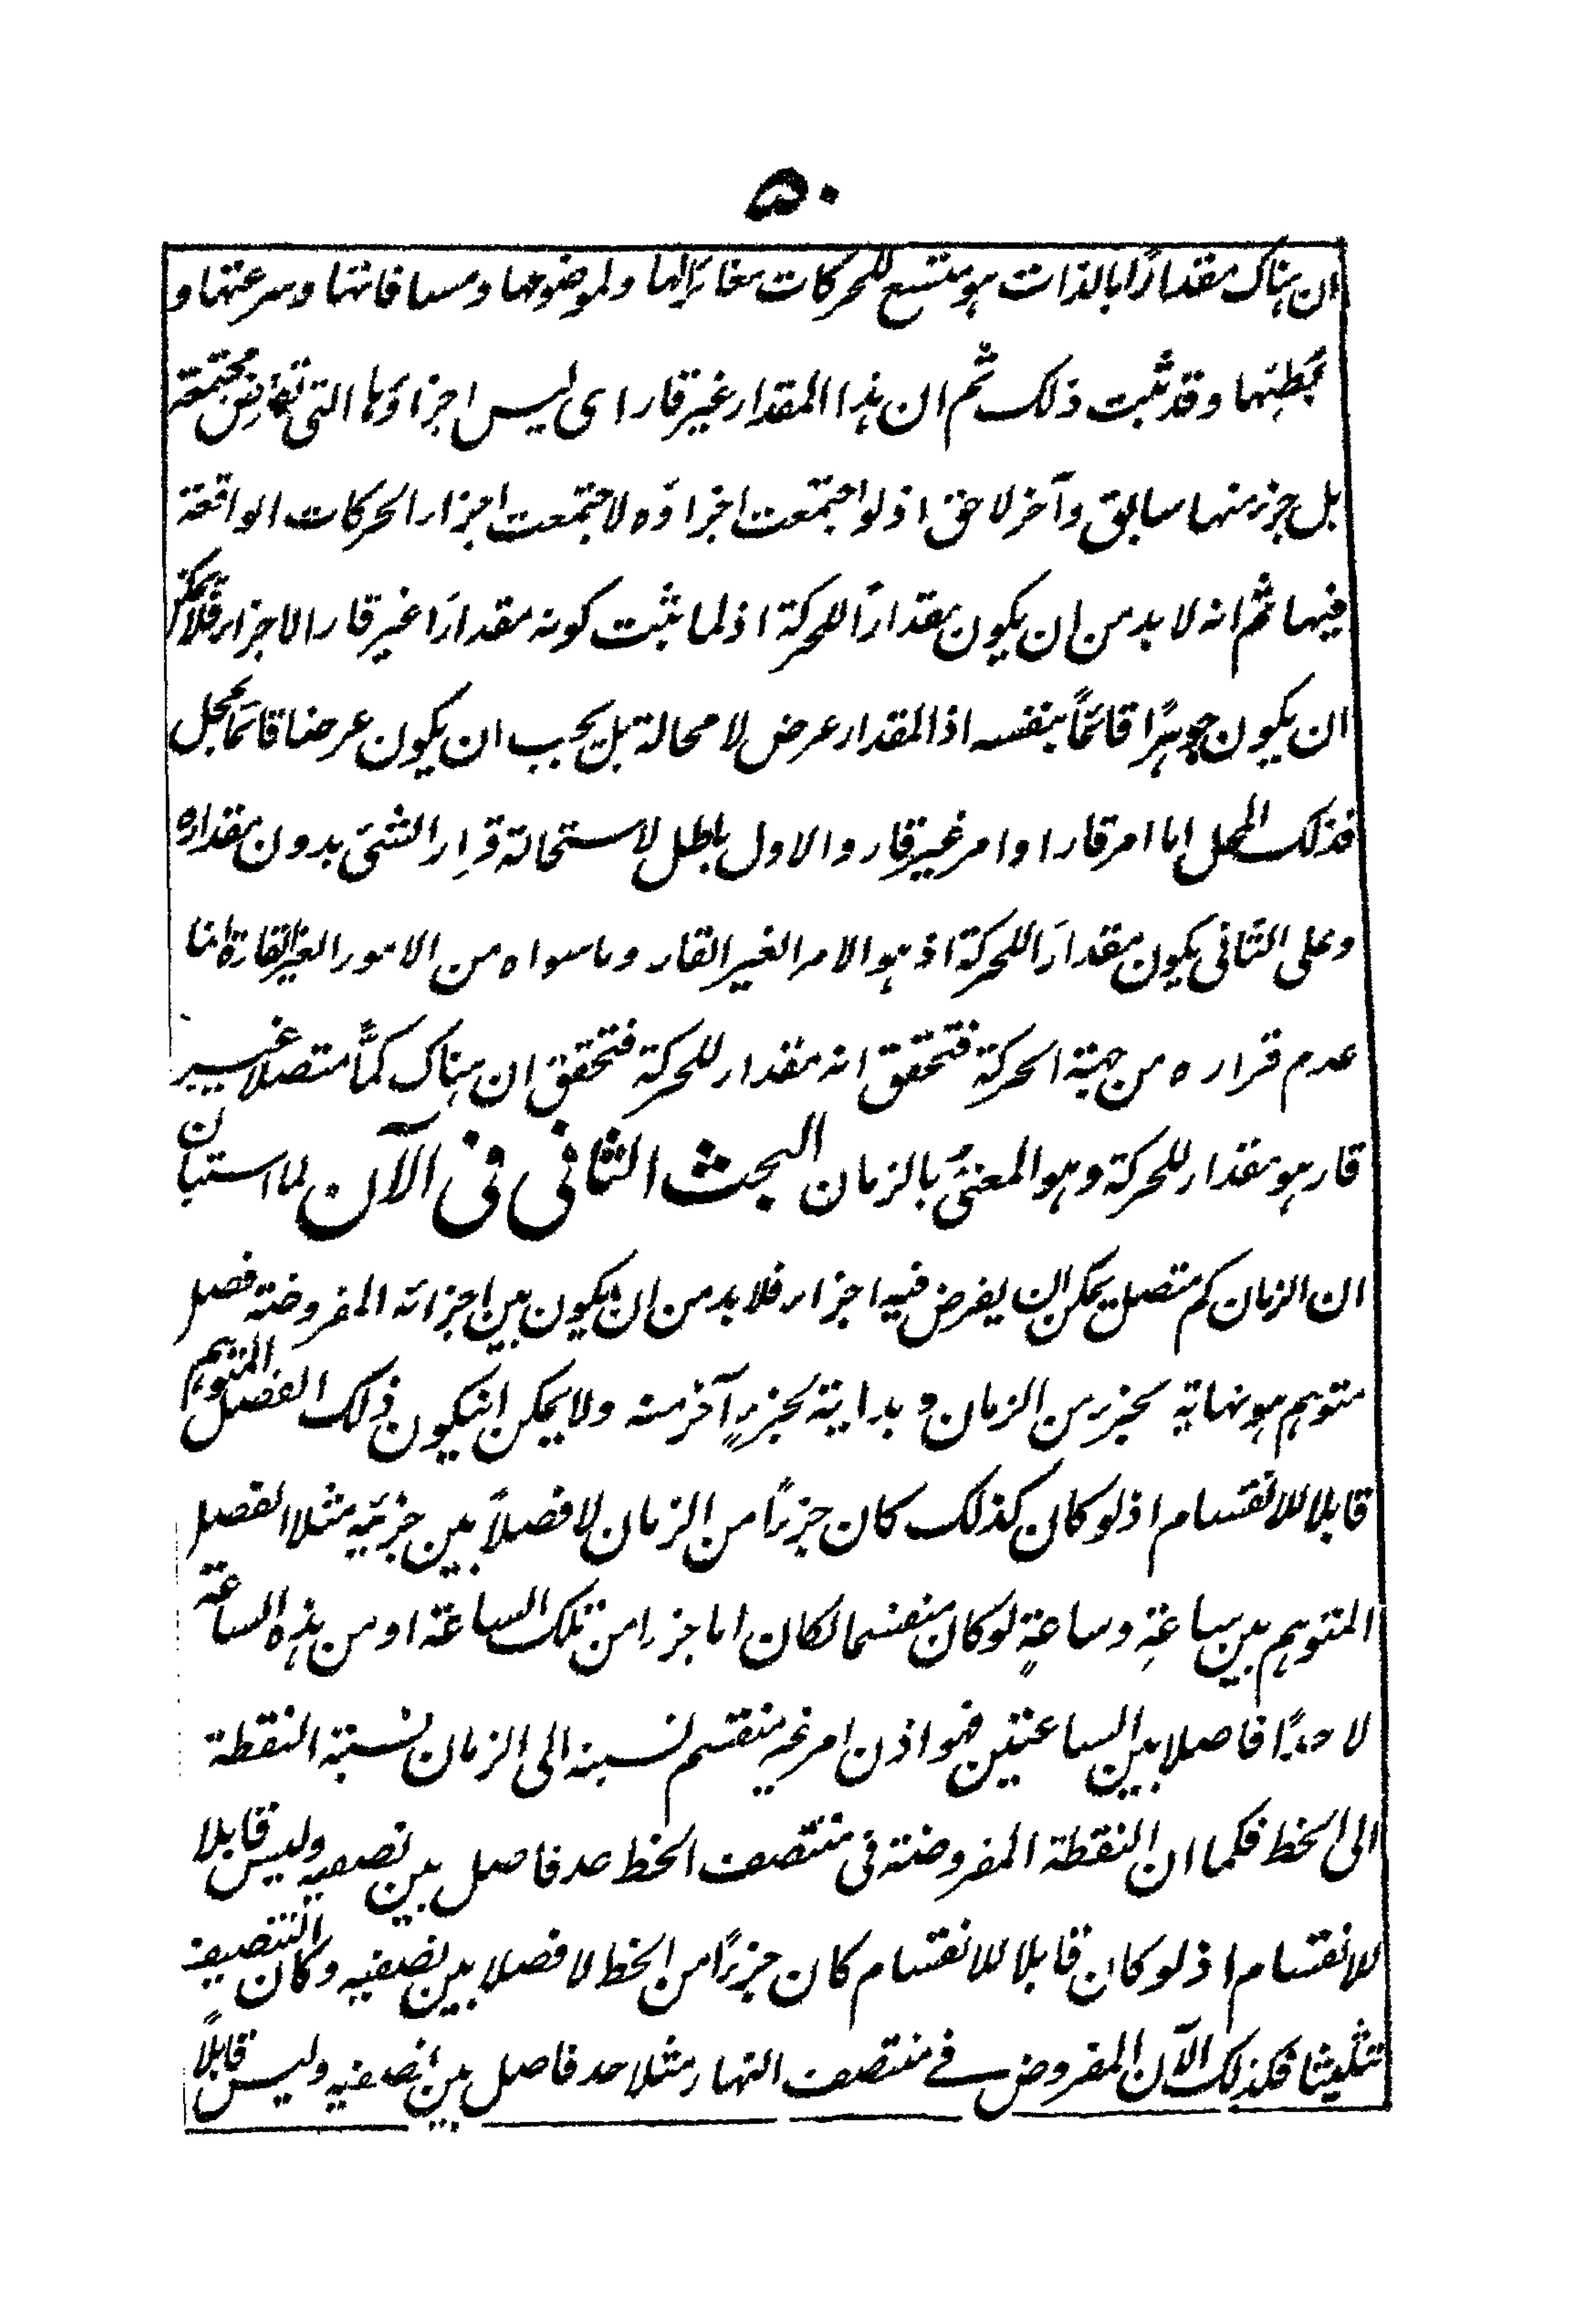 ۵۰
ان هناك مقدارًا بالذات هو متسع للحركات مغائرًا لها ولموضوعها ومسافاتها وسرعتها و
بطئها وقد ثبت ذلك ثم ان هذا المقدار غير قار اى ليس اجزاؤها التى تفرض مجتمعة
بل جزء منها سابق وآخر لاحق اذ لو اجتمعت اجزاؤه لاجتمعت اجزاء الحركات الواقعة
فيها ثم انه لا بد من ان يكون مقدارًا للحركة اذ لما ثبت كونه مقدارًا غير قار الاجزاء فلا يمكن
ان يكون جوهرًا قائمًا بنفسه اذ المقدار عرض لا محالة بل يجب ان يكون عرضا قائما بمحل
فذلك المحل اما امر قار او امر غير قار والاول باطل لاستحالة قرار الشئ بدون مقداره
وعلى الثانى يكون مقدارًا للحركة اذ هو الامر الغير القار وما سواه من الامور الغير القارة انما
عدم قراره من جهة الحركة فتحقق انه مقدار للحركة فتحقق ان هناك كمًّا متصلا غير
قار هو مقدار للحركة وهو المعنىُّ بالزمان البحث الثانى فى الآن لما استبان
ان الزمان كم متصل يمكن ان يفرض فيه اجزاء فلا بد من ان يكون بين اجزائه المفروضة فصل
متوهم هو نهاية لجزء من الزمان و بداية لجزءٍ آخر منه ولا يمكن انيكون ذلك الفصل المتوهم
قابلا للانقسام اذ لو كان كذلك كان جزءًا من الزمان لا فصلاً بين جزئيه مثلا الفصل
المتوهم بين ساعةٍ وساعةٍ لو كان منقسما لكان اما جزءا من تلك الساعة او من هذه الساعة
لا حدًا فاصلا بين الساعتين فهو اذن امر غير منقسم نسبته الى الزمان نسبة النقطة
الى الخط فكما ان النقطة المفروضة فى منتصف الخط حد فاصل بين نصفيه وليس قابلا
للانقسام اذ لو كان قابلا للانقسام كان جزءًا من الخط لا فصلا بين نصفيه وكان التنصيف
تثليثا فكذلك الآن المفروض فے منتصف النهار مثلا حد فاصل بين نصفيه وليس قابلاً